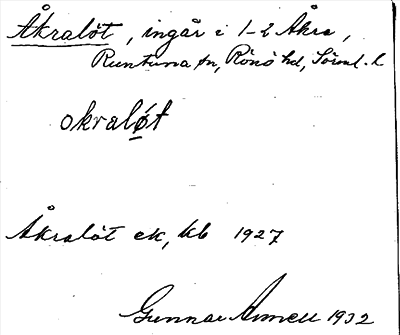 Åkralöt, ingår i 1-2 Åkra,
Runtuna sn, Rönö hd, Sörml. l.
okraløt
Åkralöt ek, kb 1927
Gunnar Armell 1932